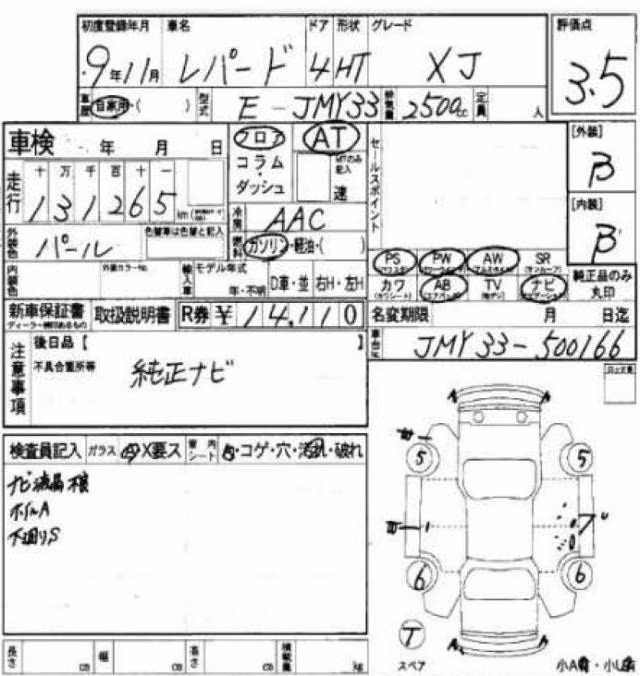 初度登録年月 車名 ドア 形状 グレード 評価点
9年11月 レパード 4 HT XJ 3.5
車歴 自家用・( ) 型式 E-JMY33 排気量 2500cc 定員 人
車検 年 月 日 フロア AT セールスポイント [外装]
B
コラム・ダッシュ MTのみ記入 速
走行 十 万 千 百 十 一
131265 km
冷房 AAC [内装]
B
外装色 パール 色替車は色替と記入 燃料 ガソリン・軽油・( )
PS PW AW SR 純正品のみ丸印
内装色 外装カラーNo. 輸入車 モデル年式 年・不明 D車・並 右H・左H
カワ AB TV ナビ
新車保証書 取扱説明書 R券 ¥ 14,110 名変期限 月 日迄
車台No. JMY33-500166
注意事項 後日品 [ ]
不具合箇所等 純正ナビ
検査員記入 ガラス A X要ス 車内シート ・コゲ・穴・汚れ・破れ
ホイルA
下回りS
5 5
7
6 6
T
スペア
長さ cm 幅 cm 高さ cm 積載量 kg